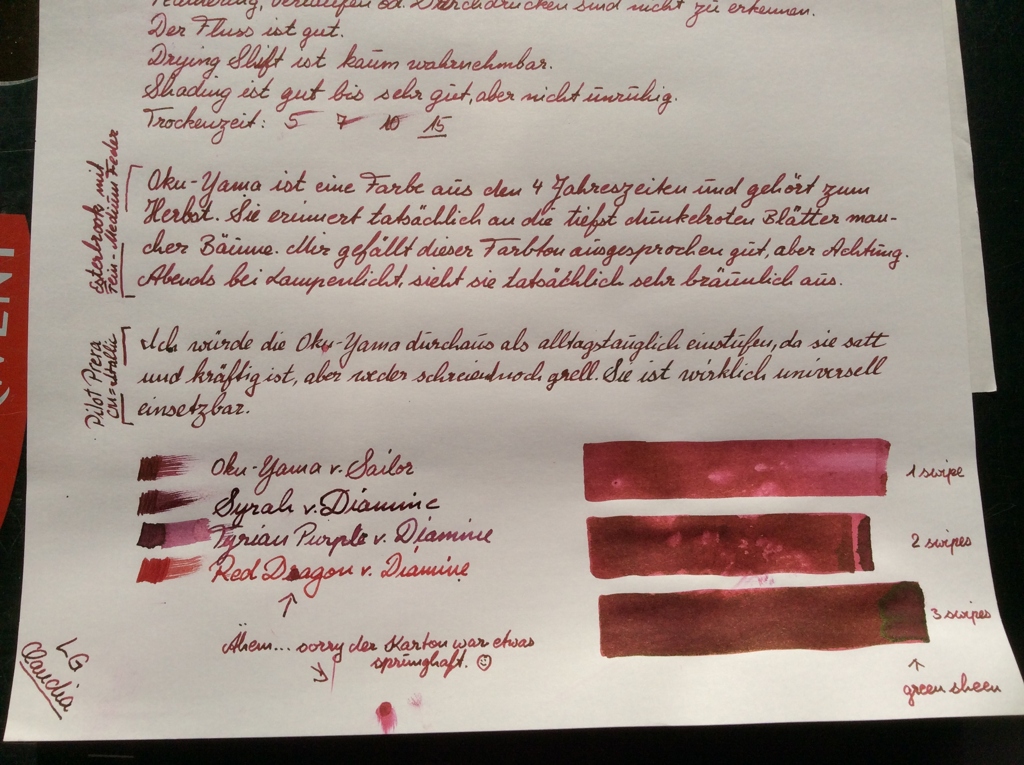 Federing, Verlaufen od. Durchdrücken sind nicht zu erkennen.
Der Fluss ist gut.
Drying Shift ist kaum wahrnehmbar.
Shading ist gut bis sehr gut, aber nicht unruhig.
Trockenzeit: 5 7 10 15
Esterbrook mit
Fein-Medium Feder
Oku-Yama ist eine Farbe aus den 4 Jahreszeiten und gehört zum
Herbst. Sie erinnert tatsächlich an die tiefst dunkelroten Blätter man-
cher Bäume. Mir gefällt dieser Farbton ausgesprochen gut, aber Achtung.
Abends bei Lampenlicht, sieht sie tatsächlich sehr bräunlich aus.
Pilot Prera
Ich würde die Oku-Yama durchaus als alltagstauglich einstufen, da sie satt
und kräftig ist, aber weder schreiend noch grell. Sie ist wirklich universell
einsetzbar.
Oku-Yama v. Sailor
Syrah v. Diamine
Tyrian Purple v. Diamine
Red Dragon v. Diamine
1 swipe
2 swipes
3 swipes
green sheen
Ähem... sorry der Karton war etwas
sprunghaft.
LG
Claudia
VENT